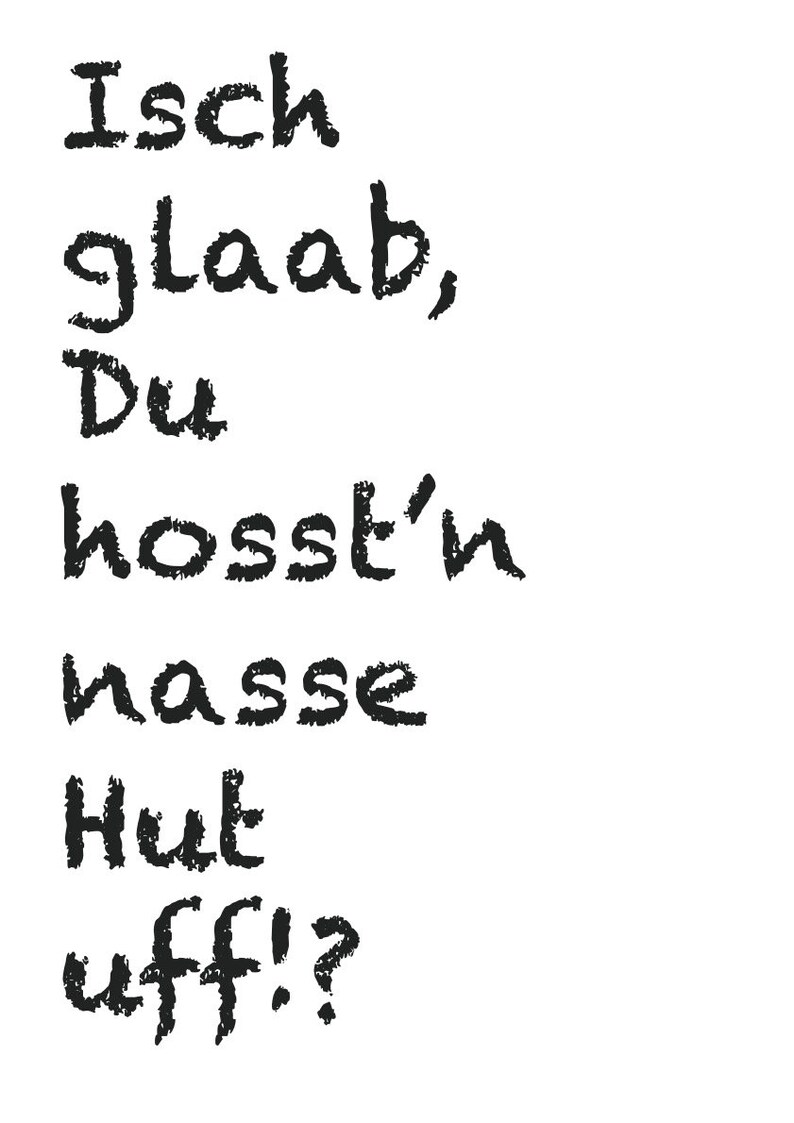 Isch
glaab,
Du
hosst'n
nasse
Hut
uff!?